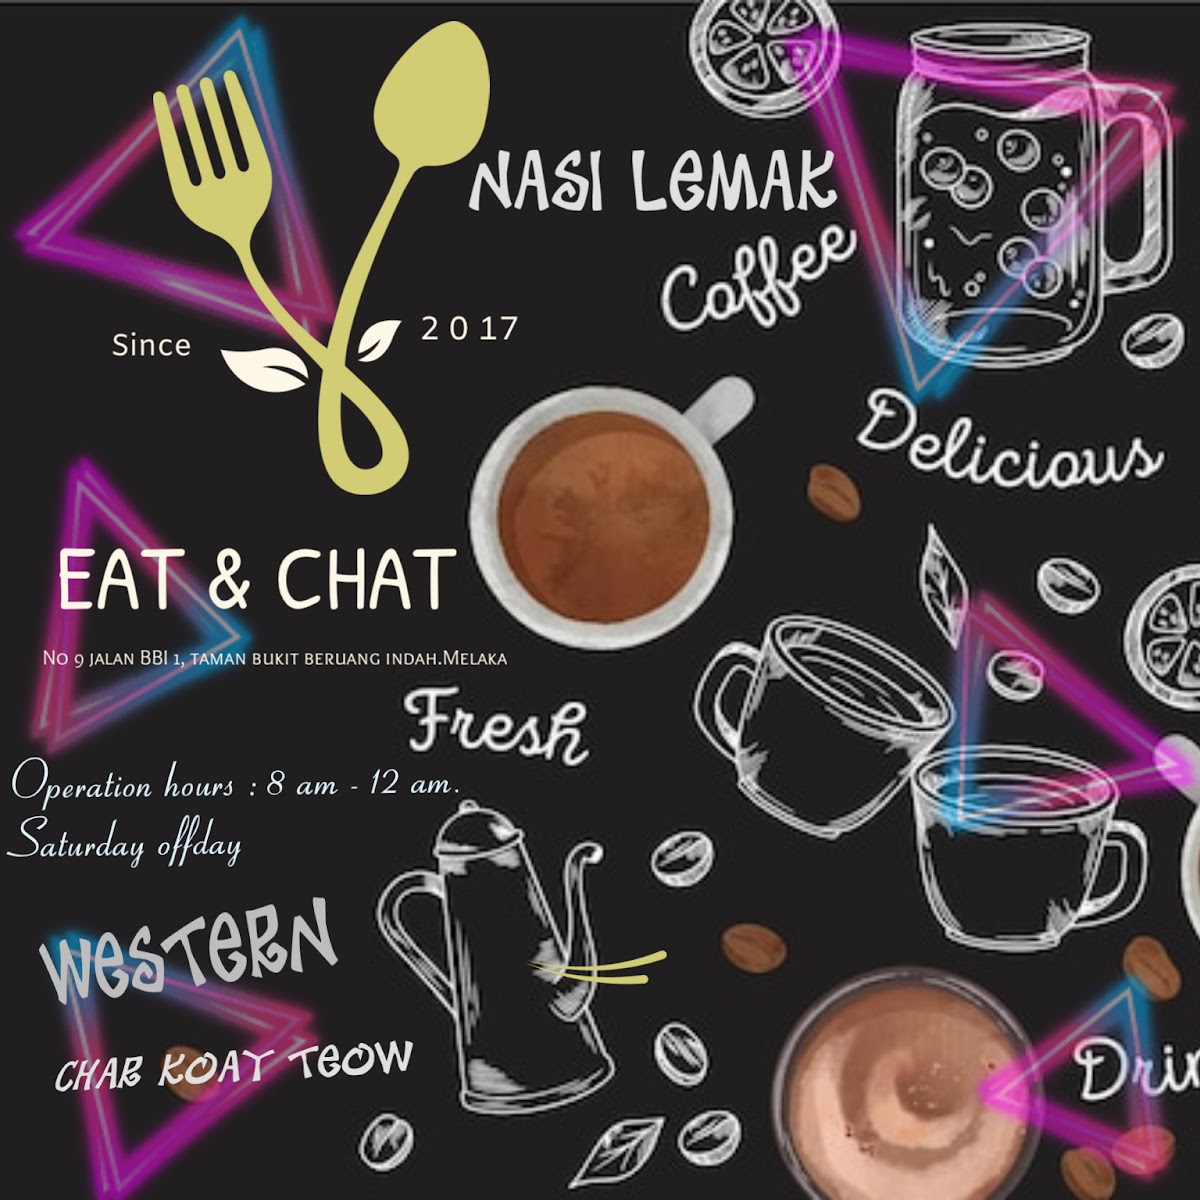 NASI LEMAK
Coffee
Since
2017
Delicious
EAT & CHAT
No 9 JALAN BBI 1, TAMAN BUKIT BERUANG INDAH.MELAKA
Fresh
Operation hours : 8 am - 12 am.
Saturday offday
WESTERN
CHAR KOAY TEOW